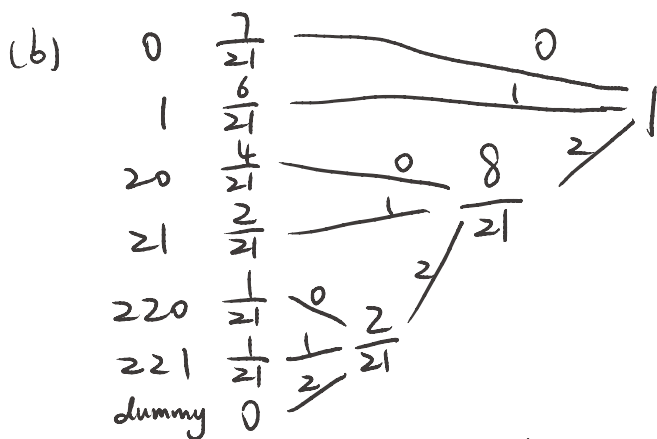 (b) 0 7/21 0
1 6/21 1 1
20 4/21 0 8/21 2
21 2/21 1
2
220 1/21 0 2/21
221 1/21 1
2
dummy 0